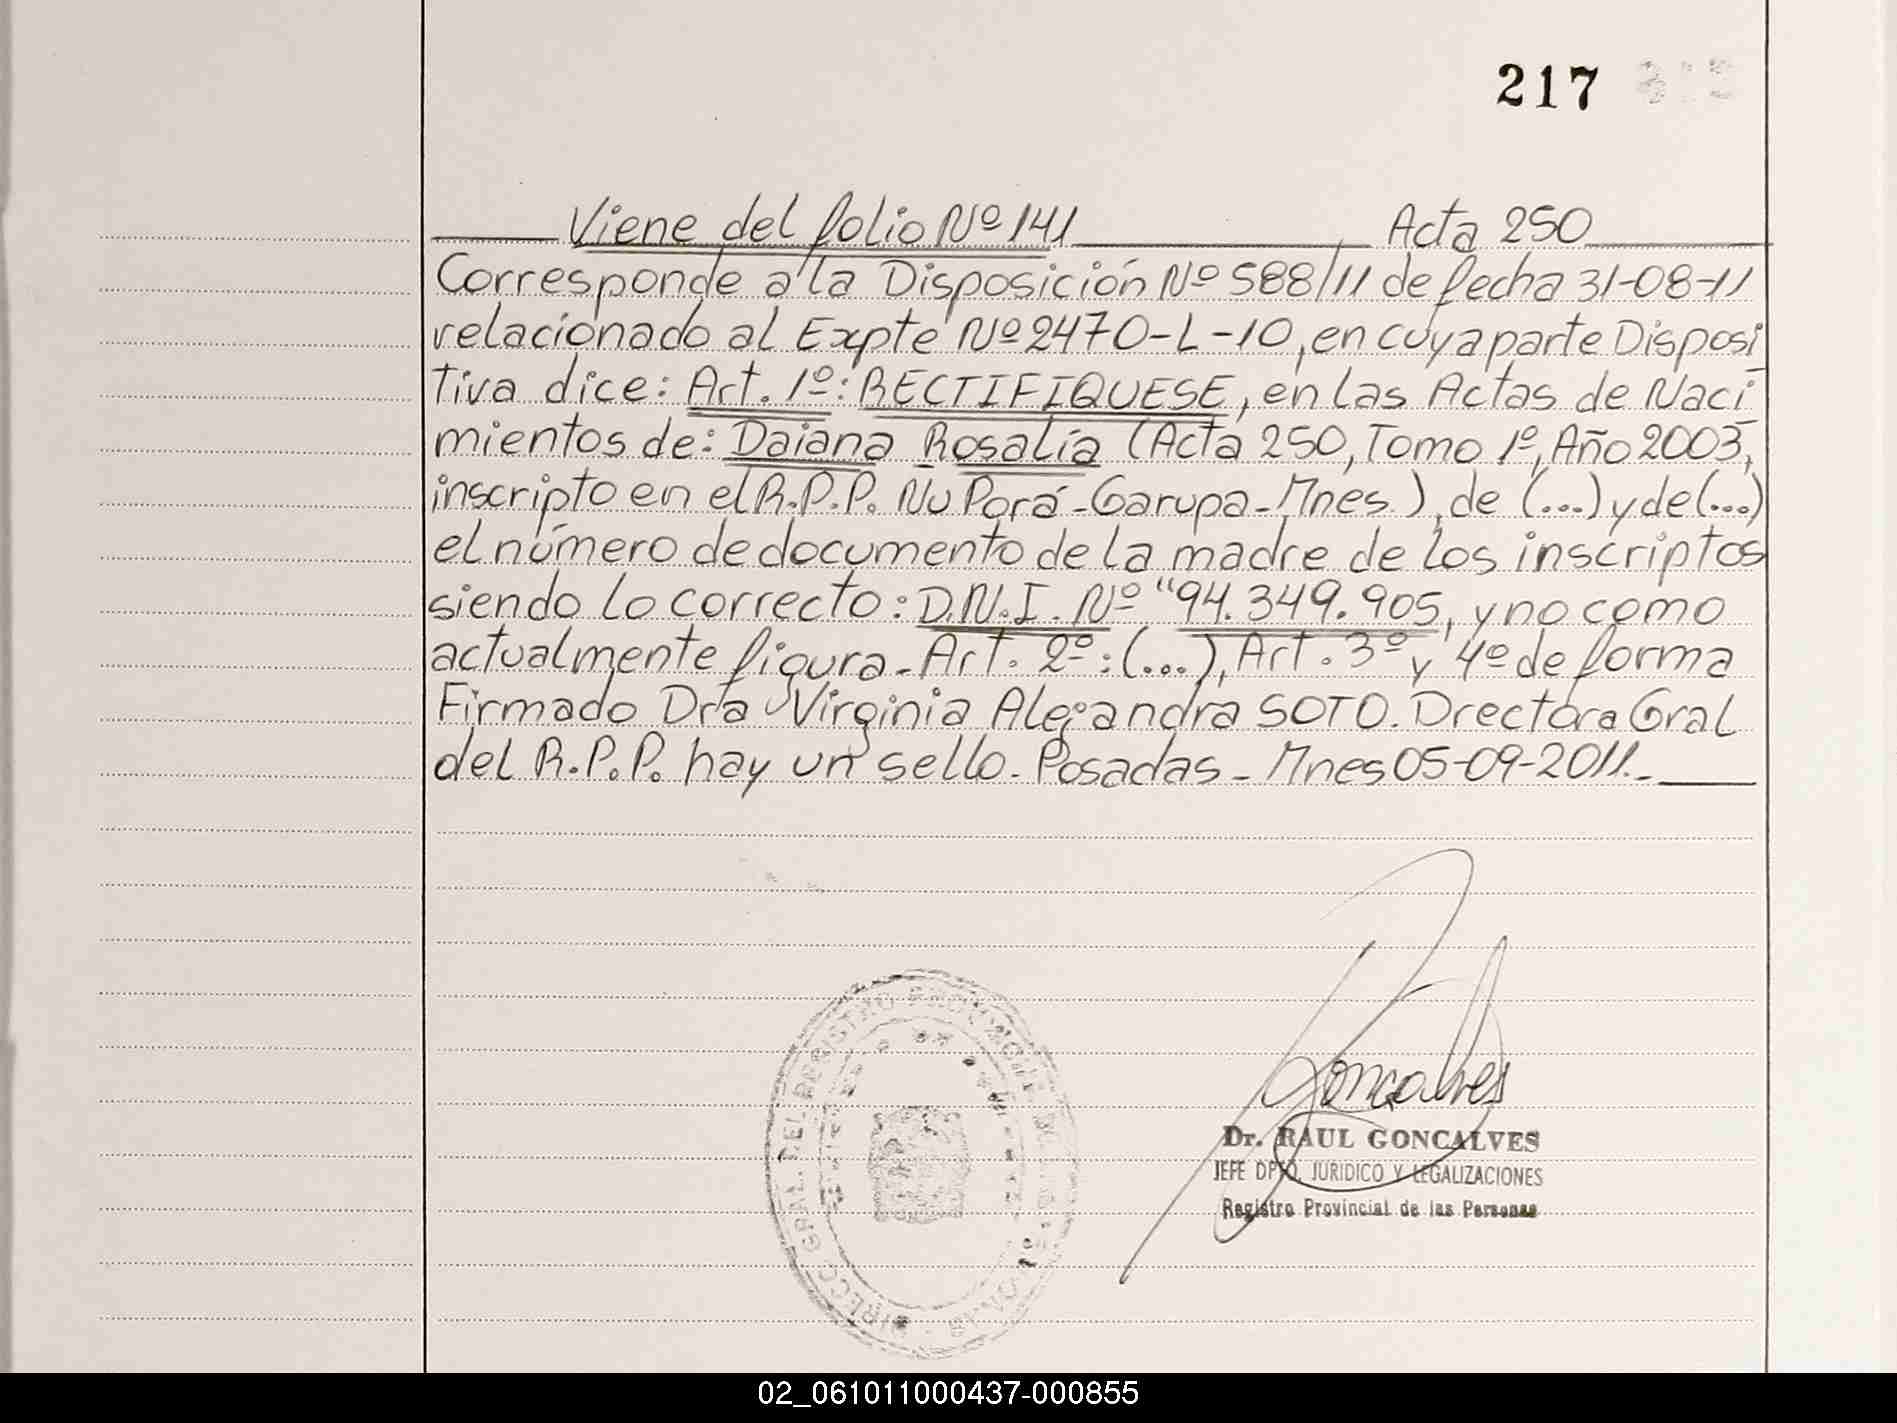 217
Viene del folio Nº 141 Acta 250
Corresponde a la Disposición Nº 588/11 de fecha 31-08-11
relacionado al Expte Nº 2470-L-10, en cuya parte Disposi
tiva dice: Art. 1º: RECTIFIQUESE, en las Actas de Naci
mientos de: Daiana Rosalía (Acta 250, Tomo 1º, Año 2003,
inscripto en el R.P.P. Ñu Porá - Garupa - Mnes.), de (...) y de (...)
el número de documento de la madre de los inscriptos
siendo lo correcto: D.N.I. Nº "94.349.905, y no como
actualmente figura - Art. 2º: (...), Art. 3º y 4º de forma
Firmado Dra Virginia Alejandra SOTO. Drectora Gral
del R.P.P. hay un sello - Posadas - Mnes 05-09-2011.-
DIRECC. GRAL. DEL REGISTRO PROVINCIAL
Goncalves
Dr. RAUL GONCALVES
JEFE DPTO. JURIDICO Y LEGALIZACIONES
Registro Provincial de las Personas
02_061011000437-000855